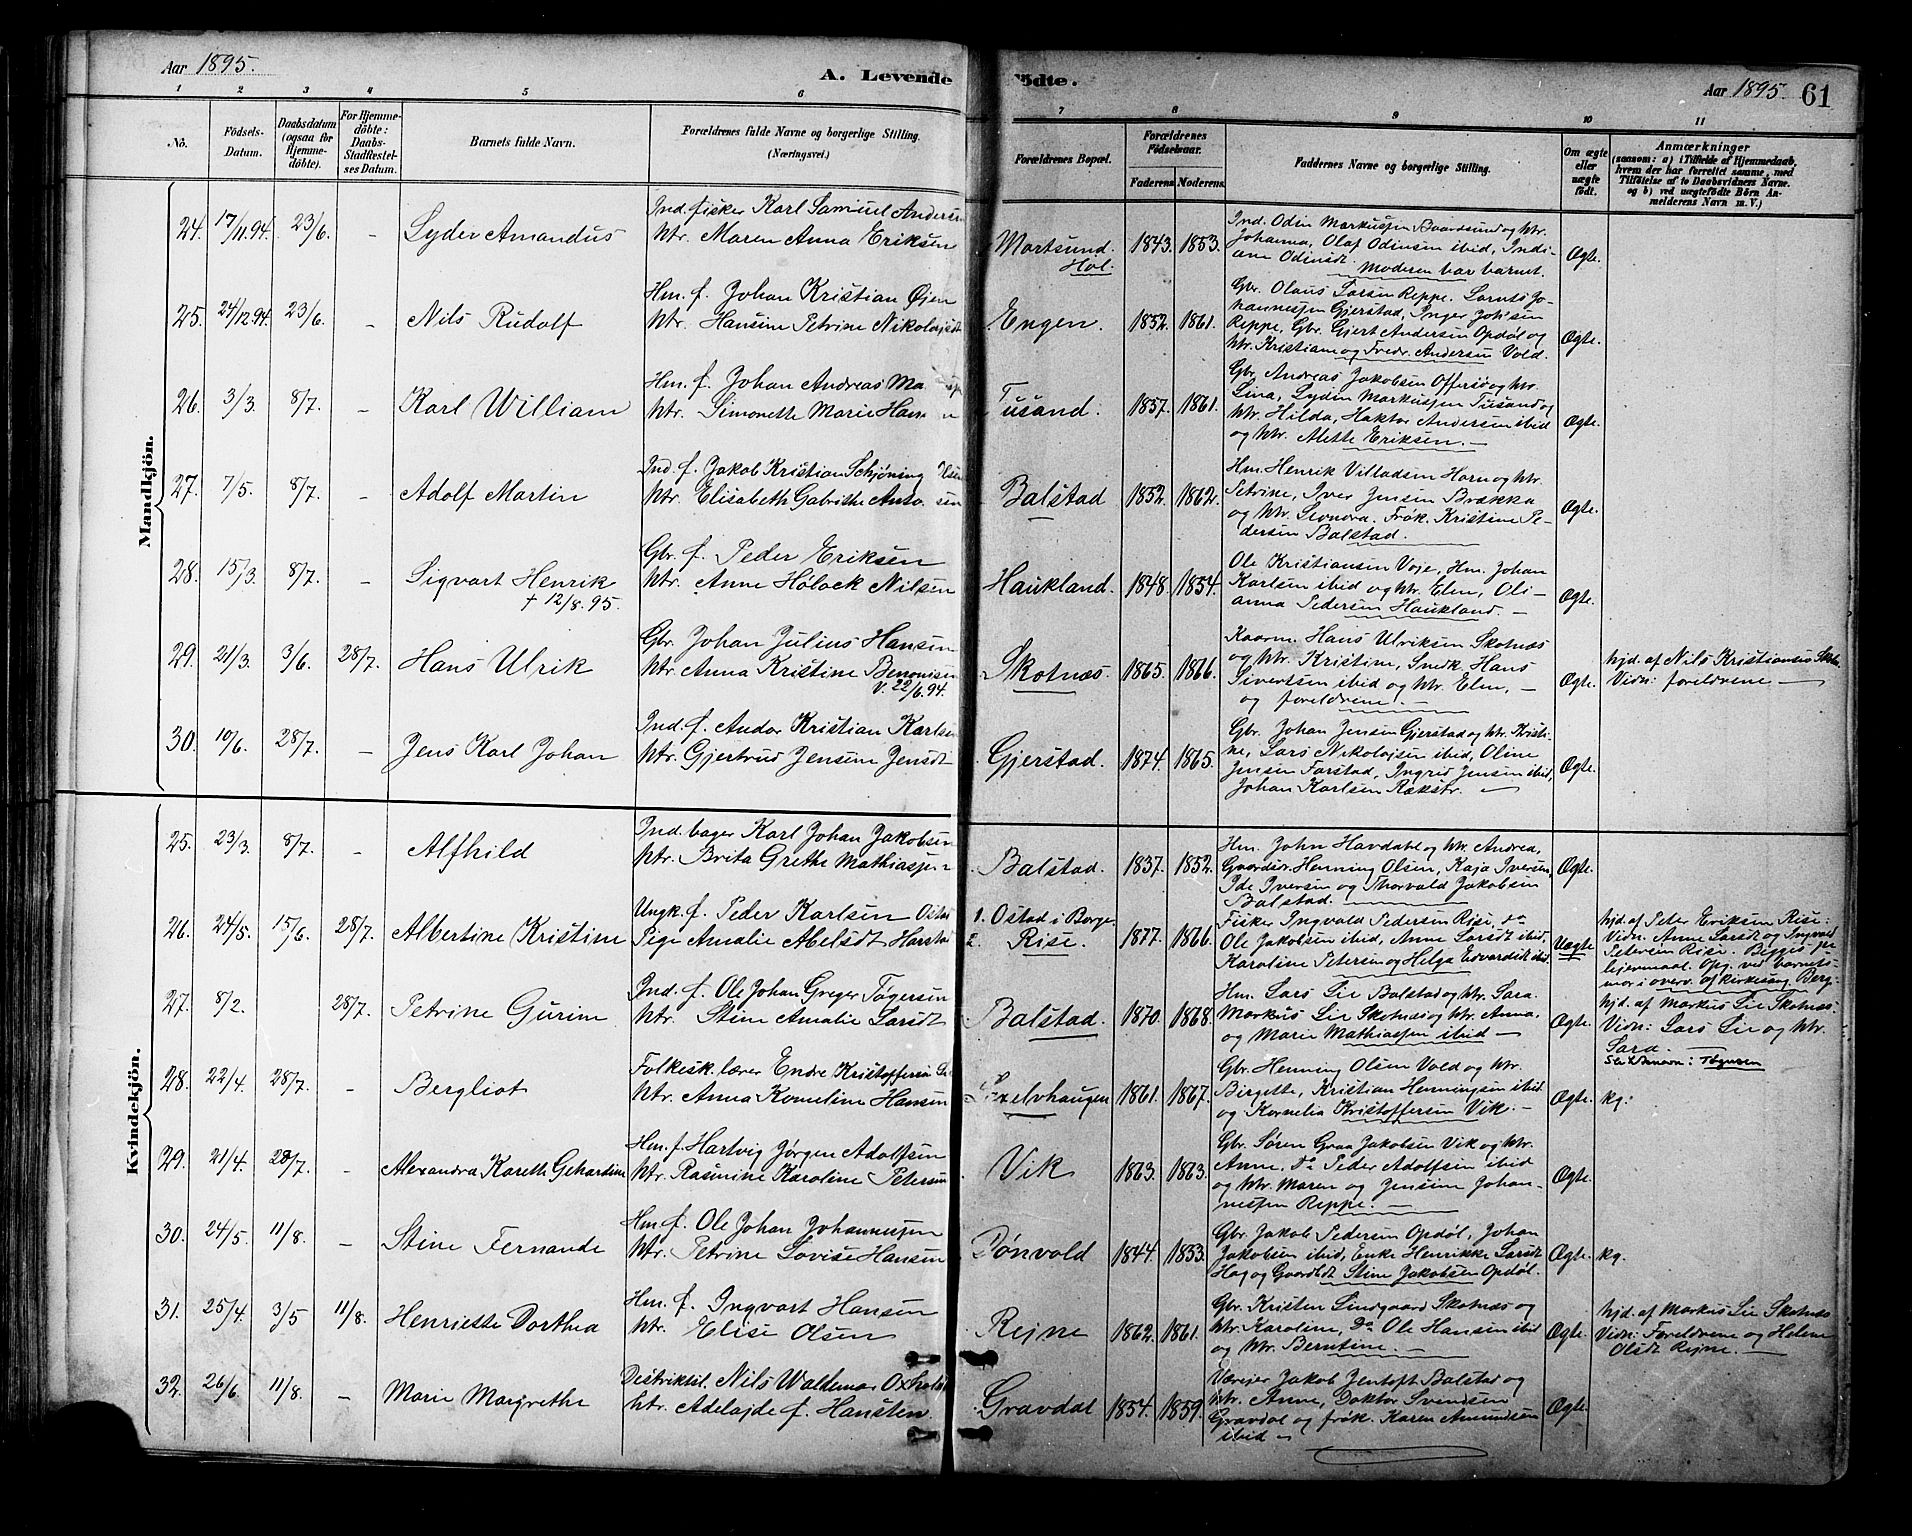 Aar 1895. A. Levende födte. Aar 1895. 61
1 2 3 4 5 6 7 8 9 10 11
No. Födsels-Datum. Daabsdatum (ogsaa för Hjemmedöbte). For Hjemmedöbte: Daabs-Stadfæstelses Datum. Barnets fulde Navn. Forældrenes fulde Navne og borgerlige Stilling. (Næringsvei.) Forældrenes Bopæl. Forældrenes Födselsaar. Faderens. Moderens. Faddernes Navne og borgerlige Stilling. Om ægte eller uægte födt. Anmærkninger (saasom: a) i Tilfælde af Hjemmedaab, hvem der har forrettet samme, med Tilföielse af to Daabsvidners Navne, og b) ved uægtefödte Börn Anmelderens Navn m. V.)
Mandkjön.
24. 17/11.94. 23/6. - Lyder Amandus
Ind. fisker Karl Samuel Andersen
htr. Maren Anna Eriksen
Mortsund. Hol. 1843. 1853.
Ind. Odin Markussen Baarsund og htr.
Johanna, Olaf Odinsen ibid, Indi-
ane Odinsdt. Moderen bar barnet.
Ægte.
25. 24/12.94. 23/6. - Nils Rudolf
Hm. f. Johan Kristian Øjen
htr. Hansine Petrine Nikolajsdt
Engen. 1852. 1861.
Gbr. Olaus Larsen Reppe. Lornts Jo-
hannessen Gjerstad, Inger Joh'sen
Reppe, Gbr. Gjert Andersen Opdøl og
htr. Kristiane og Fredr. Andersen Vold.
Ægte.
26. 3/3. 8/7. - Karl William
Hm. f. Johan Andreas
htr. Simonette Marie
Tusand. 1857. 1861.
Gbr. Andreas Jakobsen Offersø og htr.
Lina, Lyder Markussen Tusand og
htr. Hilda, Haktor Andersen ibid
og htr. Alette Eriksen.
Ægte.
27. 7/5. 8/7. - Adolf Martin
Ind. f. Jakob Kristian Schjøning Olsen
htr. Elisabeth Gabrithe
Balstad 1852. 1862.
Hm. Henrik Villadsen Horn og htr.
Petrine, Iver Jensen Brækka
og htr. Leonora. Frøk. Kristine Pe-
dersen Balstad.
Ægte.
28. 15/3. 8/7. - Sigvart Henrik
† 12/8.95.
Gbr. f. Peder Eriksen
htr. Anne Holock Nilsen
Haukland. 1848. 1854.
Ole Kristiansen Voje, Hm. Johan
Karlsen ibid og htr. Elen, Oli-
anna Pedersen Haukland. -
Ægte.
29. 21/3. 3/6. 28/7. Hans Ulrik
Gbr. Johan Julius Hansen
htr. Anna Kristine Benonisen
V. 22/6.94.
Skotnæs. 1865. 1866.
Kaarm. Hans Ulriksen Skotnæs
og htr. Kristine, Snedk. Hans
Sivertsen ibid og htr. Elen, -
og foreldrene. -
Ægte.
hjd. af Nils Kristiansen
Vidn: foreldrene -
30. 10/6. 28/7. - Jens Karl Johan
Ind. f. Andor Kristian Karlsen
htr. Gjertrud Jensine Jensdt
Gjerstad. 1874. 1865.
Gbr. Johan Jensen Gjerstad og htr. Kristi-
ne, Lars Nikolajsen ibid, Oline
Jensen Farstad, Ingrid Jensen ibid,
Johan Karlsen Rækstr. -
Ægte.
Kvindekjön.
25. 23/3. 8/7. - Alfhild
Ind. bager Karl Johan Jakobsen
htr. Brita Grethe Mathiassen
Balstad. 1837. 1852.
Hm. John Havdahl og htr. Andrea,
Gaardsbr. Henning Olsen, Kaja Iversen,
Ide Iversen og Thorvald Jakobsen
Balstad.
Ægte.
26. 24/5. 15/6. 28/7. Albertine Kristine
Ungk. f. Peder Karlsen Ostad
Pige Amalie Abelsdt Harstad
1. Ostad i Borge
2. Rise. 1877. 1866.
Fisker Ingvald Pedersen Rise, do
Ole Jakobsen ibid, Anne Larsdt ibid,
Karoline Petersen og Helga Edvardsdt ibid.
Uægte
hjd. af Peter Eriksen Rise:
Vidn. Anne Larsdt og Ingvald
Petersen Rise. Begges
lejermaal. Opg. ved barnets
mor i overv. af kirkesang. Berg.
27. 8/2. 28/7. Petrine Gurine
Ind. f. Ole Johan Greger Tøgersen
htr. Stine Amalie Larsdt
Balstad. 1870. 1868.
Hm. Lars Lie Balstad og htr. Sara.
Markus Lie Skotnæs og htr. Anna,
og Marie Mathiassen ibid -
Ægte.
hjd. af Markus Lie Skotnæs.
Vidn: Lars Lie og htr.
Sara. -
: Tøgersen
28. 22/4. 28/7. - Bergliot
Folkesk. lærer Endre Kristoffersen
htr. Anna Korneline Hansen
1861. 1867.
Gbr. Henning Olsen Vold og htr.
Birgitte, Kristian Henningsen ibid
og Kornelia Kristoffersen Vik. -
Ægte. kg:
29. 21/4. 28/7. - Alexandra Kareth Gehardine
Hm. f. Hartvig Jørgen Adolfsen
htr. Rasmine Karoline Petersen
Vik 1863. 1863.
Gbr. Søren Graa Jakobsen Vik og htr.
Anne. Do Peder Adolfsen ibid
og htr. Maren og Jensine Johan-
nessen Reppe. -
Ægte.
30. 24/5. 11/8. - Stine Fernande
Hm. f. Ole Johan Johannessen
htr. Petrine Lovise Hansen
Dønvold 1844. 1853.
Gbr. Jakob Pedersen Opdøl, Johan
Jakobsen ibid, Enke Henrikke Larsdt
Hag og Stine Jakobsen Opdøl.
Ægte. kg.
31. 25/4. 3/5 11/8. Henriette Dorthea
Hm. f. Ingvart Hansen
htr. Elise Olsen
Rejne 1862. 1861.
Gbr. Kristen Lindgaard Skotnæs og
htr. Karoline, Do Ole Hansen ibid
og htr. Berntine. -
Ægte.
hjd. af Markus Lie Skotnæs
Vidn: Foreldrene og Helene
Olsdt Rejne. -
32. 26/6 11/8. - Marie Margrethe
Distriktsl. Nils Waldemar
htr. Adelajde f. Hansten.
Gravdal 1854. 1859.
Værejer Jakob Jentoft Balstad og
htr. Anne, Doktor Svendsen
Gravdal og frøk. Karen Amundsen
ibid -
Ægte.